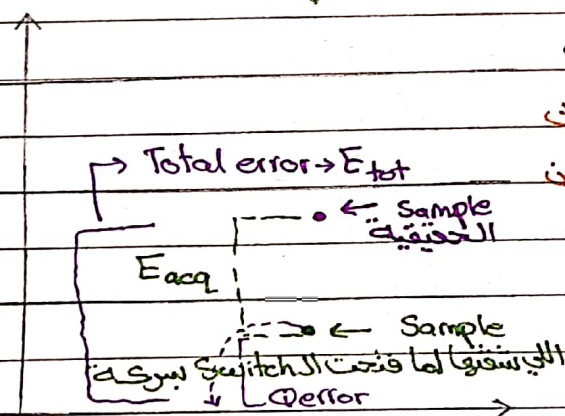 Total error → E tot
← Sample
الحقيقية
E acq
← Sample
اللي شفتها لما فتحت ال Switch بسرعة
Qerror